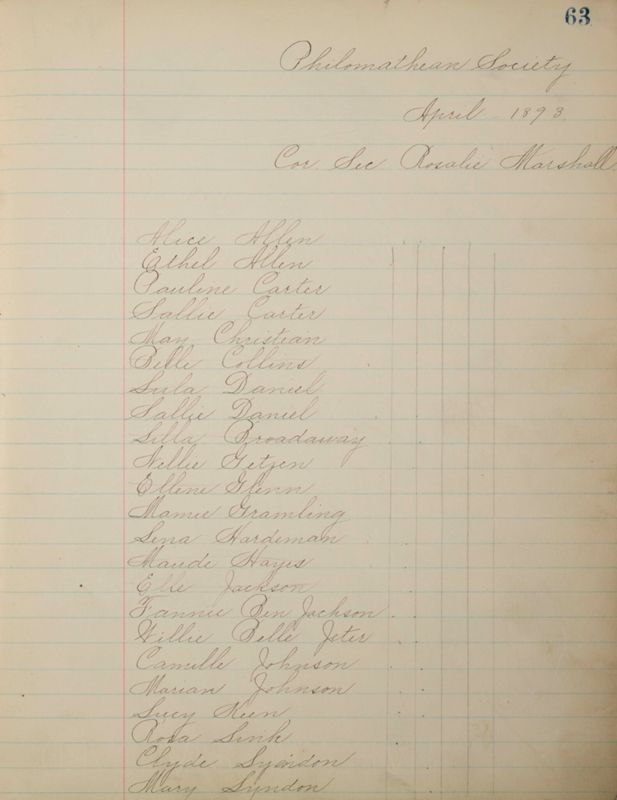 63
Philomathean Society
April 1893
Cor. Sec Rosalie Marshall
Alice Allen
Ethel Allen
Pauline Carter
Sallie Carter
May Christian
Belle Collins
Lula Daniel
Sallie Daniel
Lilla Broadaway
Nellie Getzen
Ellene Glenn
Mamie Gramling
Lena Hardeman
Maude Hayes
Elie Jackson
Fannie Ben Jackson
Willie Belle Jeter
Camille Johnson
Marian Johnson
Lucy Keen
Rosa Link
Clyde
Mary Lyndon